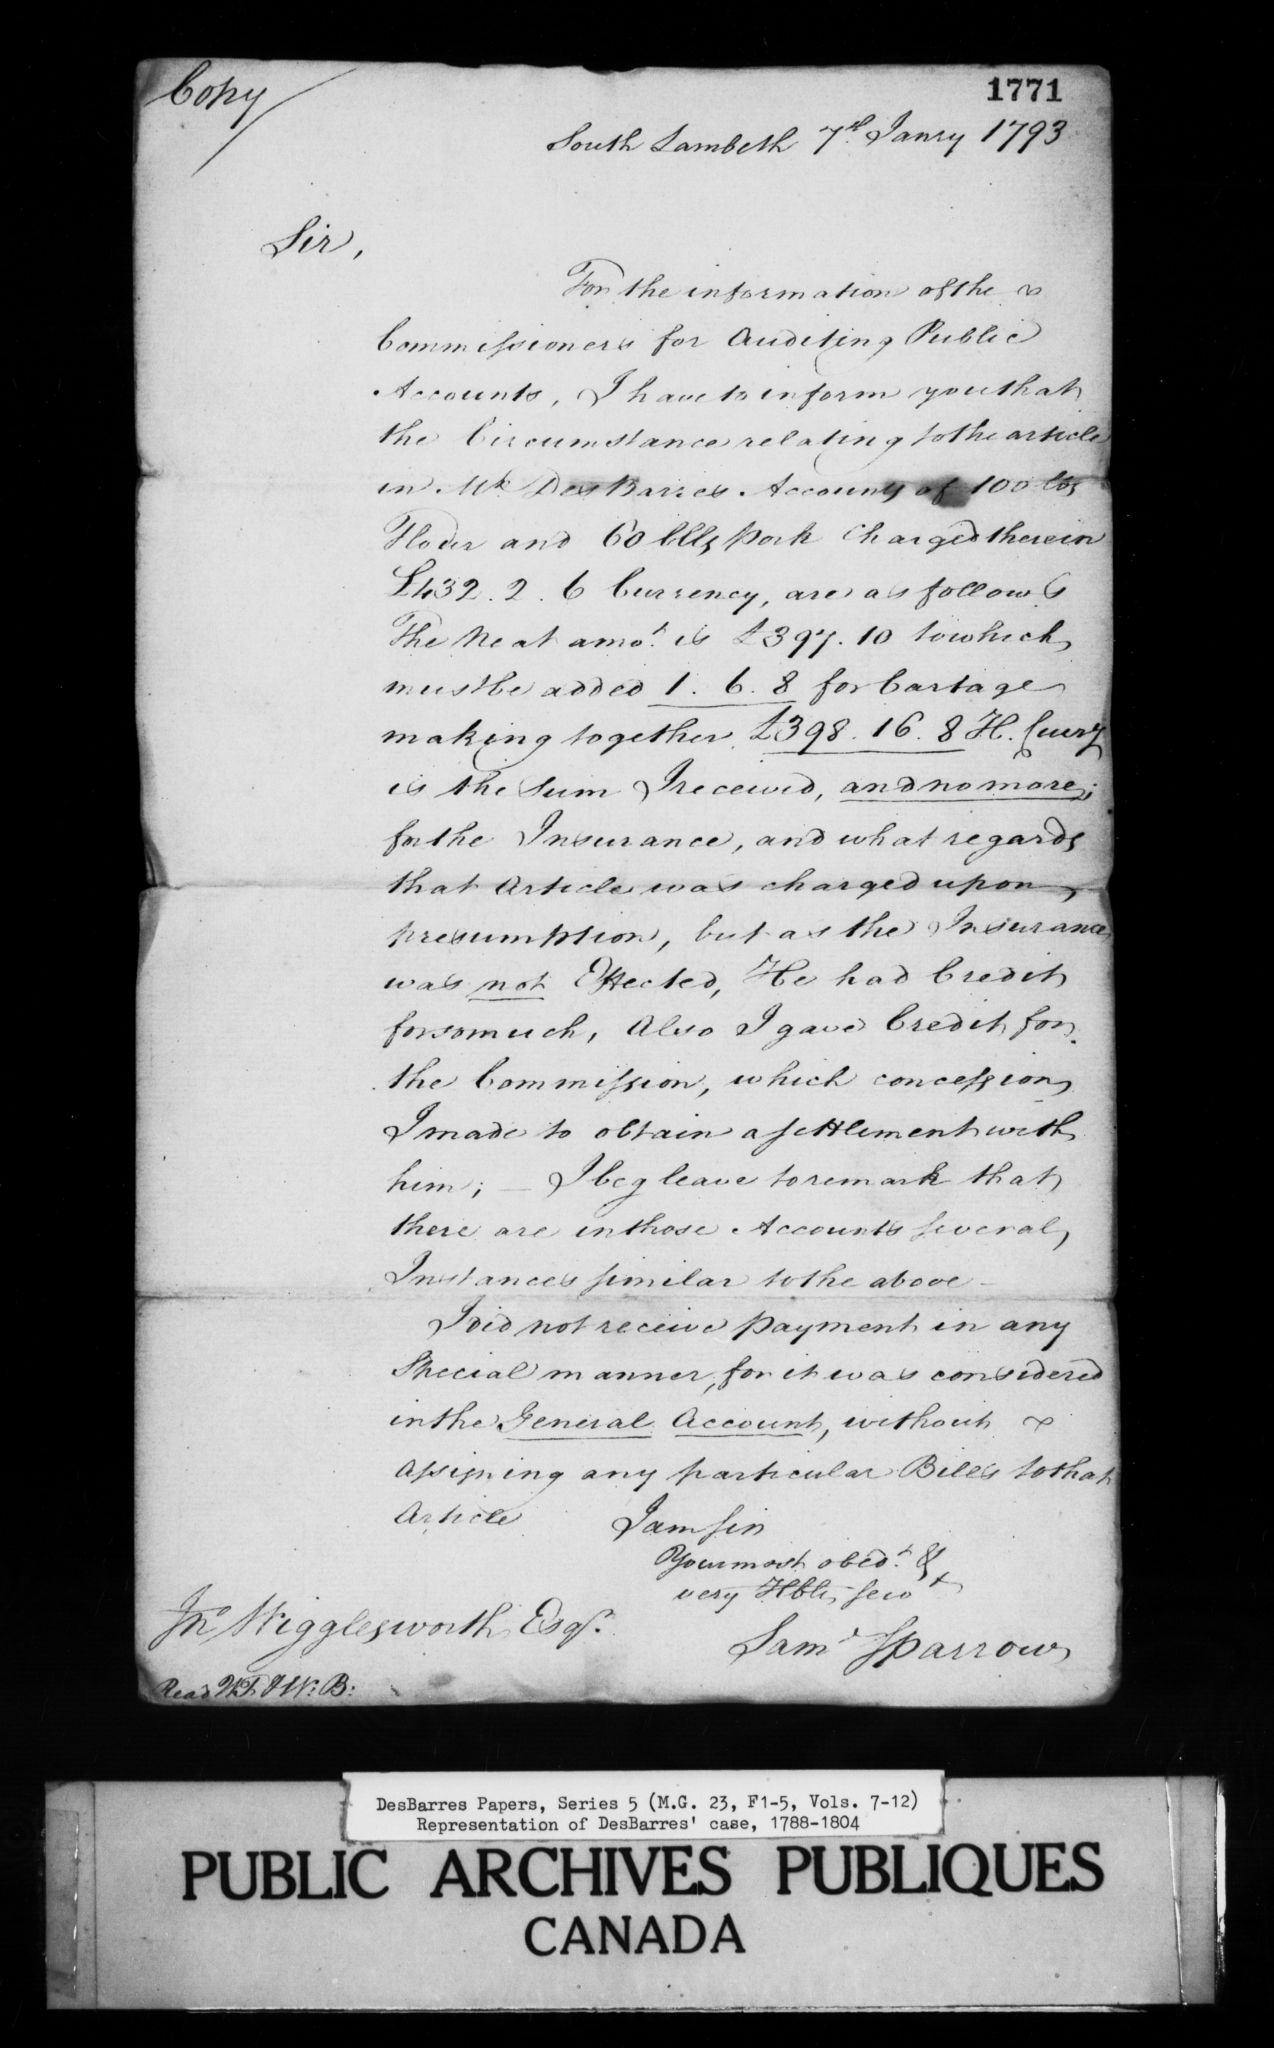 Copy
1771
South Lambeth 7th Janry 1793
Sir,
For the information of the
Commissioners for Auditing Public
Accounts, I have to inform you that
the Circumstance relating to the article
in Mr DesBarres Accounts of 100 bls
Flour and 60 blls pork Charged therein
£432. 2. 6 Currency, are as follows
The Neat amot. is £397. 10 to which
must be added 1. 6. 8 for Cartage
making together £398. 16. 8 H. Curry
is the Sum I received, and no more;
for the Insurance, and what regards
that Article was charged upon
presumption, but as the Insurance
was not Effected, He had Credit
for so much, Also I gave Credit for
the Commission, which concession
I made to obtain a settlement with
him; — I beg leave to remark that
there are in those Accounts several
Instances similar to the above –
I did not receive payment in any
Special manner, for it was considered
in the General Account, without
assigning any particular Bills to that
Article
I am Sir
Your most obedt. &
very Hble servt
Jno Wigglesworth Esqr.
Saml Sparrow
Read
DesBarres Papers, Series 5 (M.G. 23, F1-5, Vols. 7-12)
Representation of DesBarres' case, 1788-1804
PUBLIC ARCHIVES PUBLIQUES
CANADA